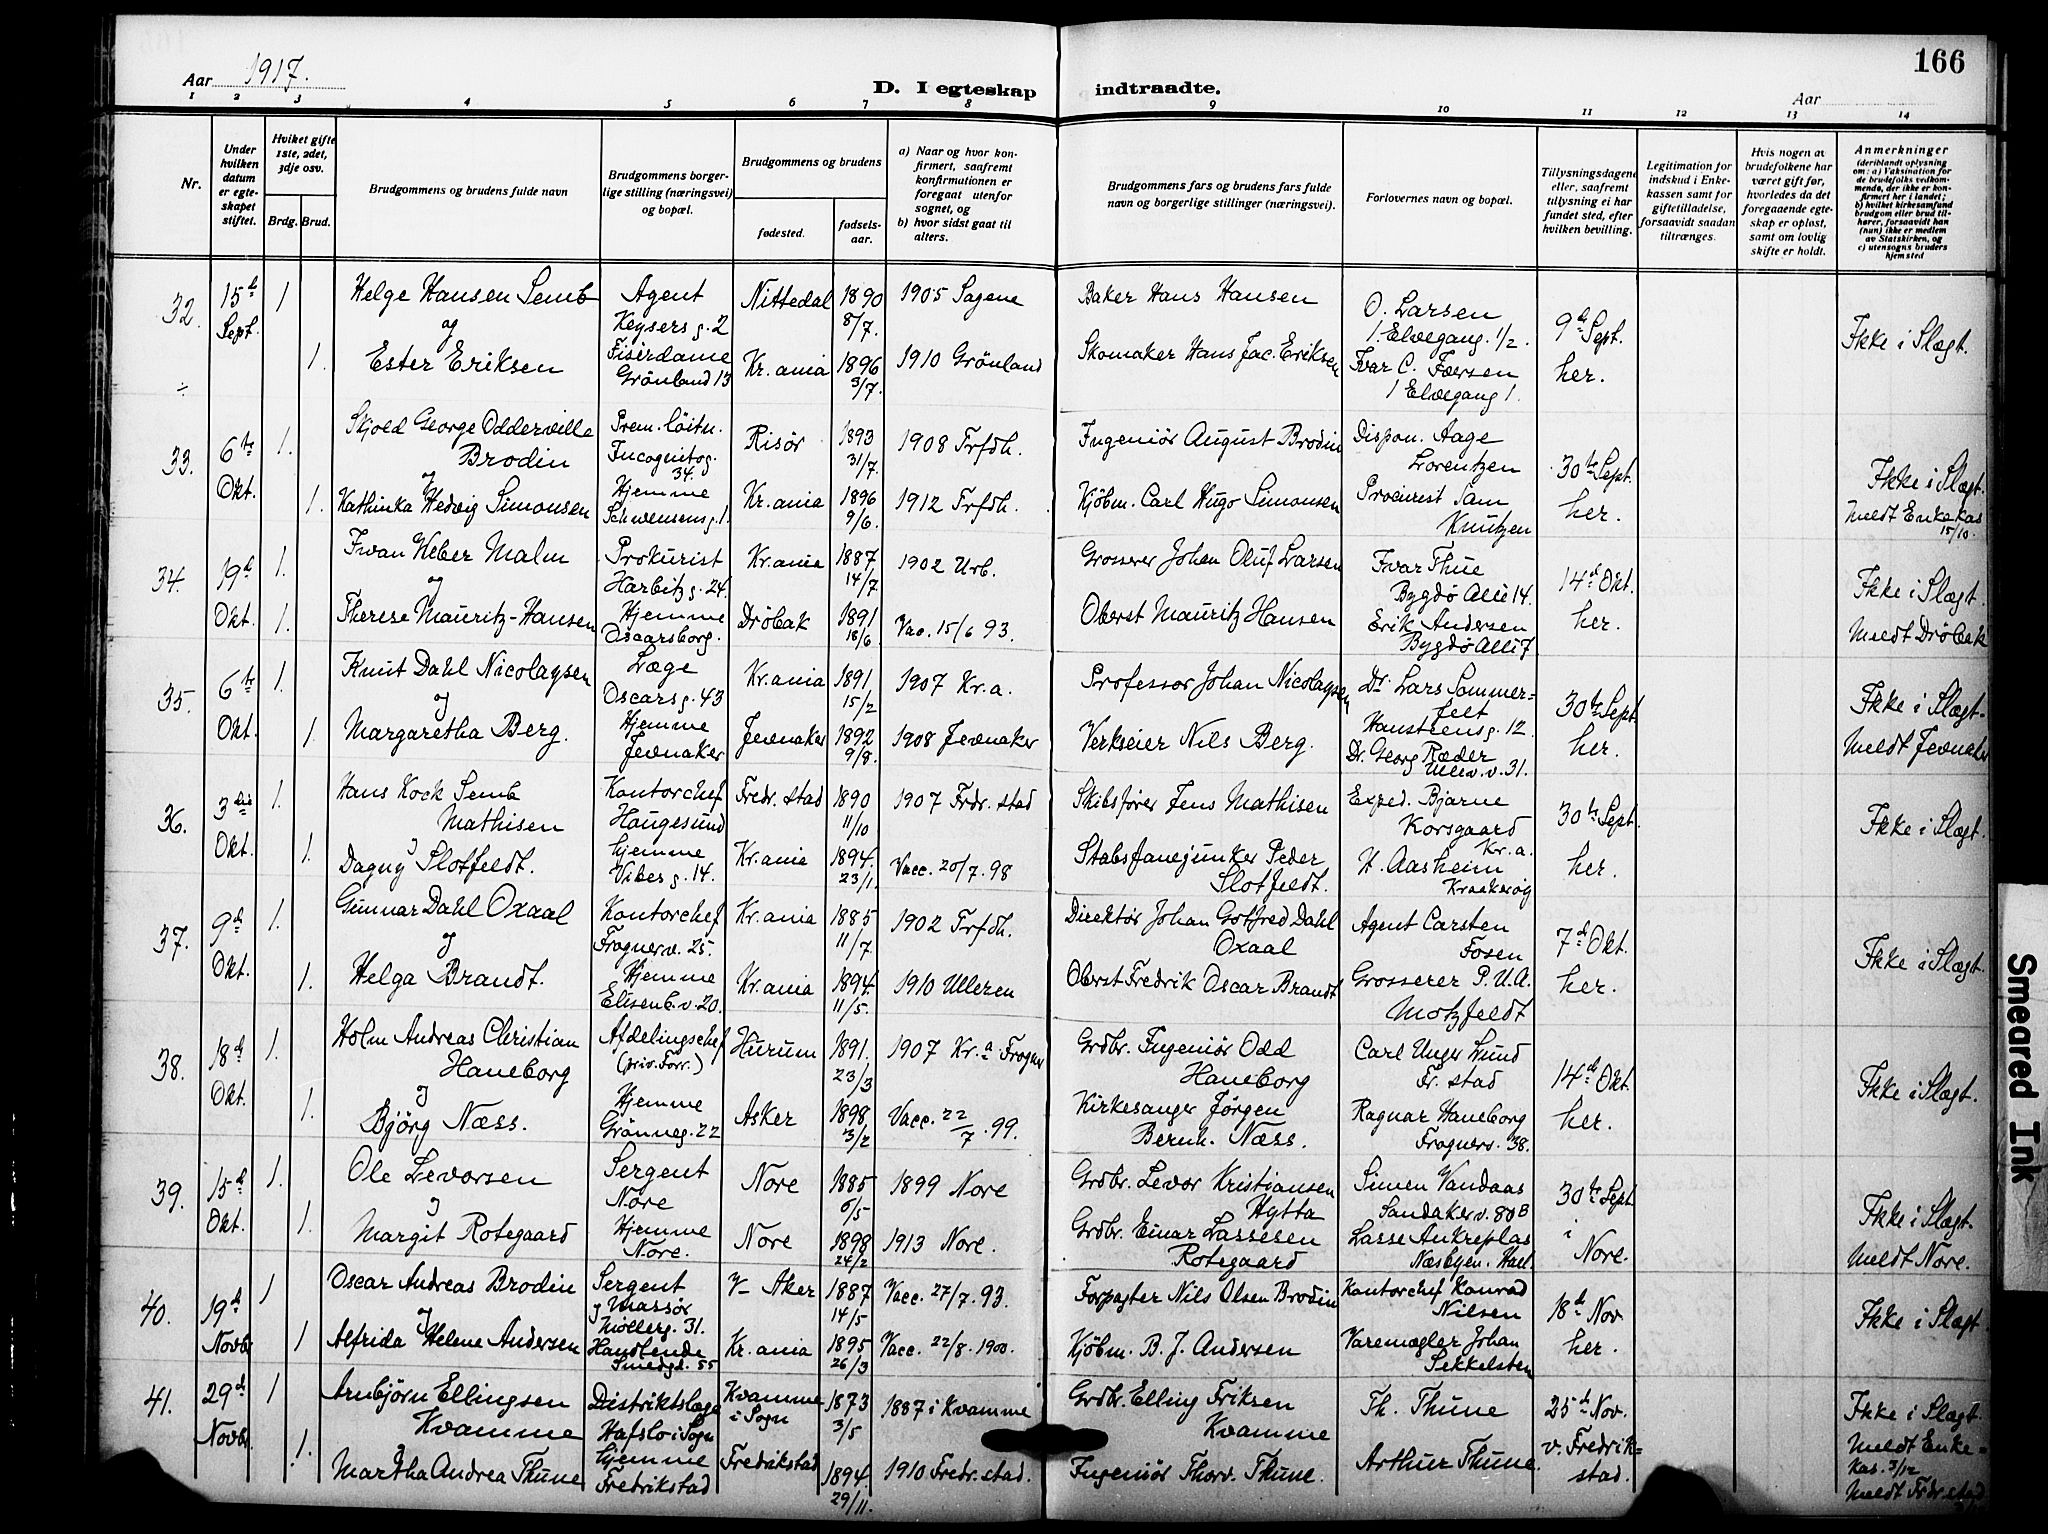 166
Aar 1917.
D. I egteskap indtraadte.
Aar
1 2 3 4 5 6 7 8 9 10 11 12 13 14
Nr.
Under hvilken datum er egteskapet stiftet.
Hviket gifte 1ste, 2det, 3dje osv.
Brdg. Brud.
Brudgommens og brudens fulde navn
Brudgommens borgerlige stilling (næringsvei) og bopæl.
Brudgommens og brudens
fødested.
fødselsaar.
a) Naar og hvor konfirmert, saafremt konfirmationen er foregaat utenfor sognet, og
b) hvor sidst gaat til alters.
Brudgommens fars og brudens fars fulde navn og borgerlige stillinger (næringsvei).
Forlovernes navn og bopæl.
Tillysningsdagene eller, saafremt tillysning ei har fundet sted, efter hvilken bevilling.
Legitimation for indskud i Enkekassen samt for giftetilladelse, forsaavidt saadan tiltrænges.
Hvis nogen av brudefolkene har været gift før, hvorledes da det foregaaende egteskap er opløst, samt om lovlig skifte er holdt.
Anmerkninger (deriblandt oplysning om: a) Vaksination for de brudefolks vedkommende, der ikke er konfirmert her i landet; b) hvilket kirkesamfund brudgom eller brud tilhører, forsaavidt han (hun) ikke er medlem av Statskirken, og c) utensogns bruders hjemsted
32. 15d Sept. 1 Helge Hansen Semb Agent Keysers g. 2 Nittedal 1890 8/7. 1905 Sagene Baker Hans Hansen O. Larsen 1. Elvegang. 1/2. 9d Sept. Ikke i Slægt.
og
1. Ester Eriksen Fisèrdame Grønland 13 Kr.ania 1896 3/7. 1910 Grönland Skomaker Hans Jac. Eriksen Ivar C. Færsen 1 Elvegang 1. her.
33. 6te Okt. 1. Skjold George Odderville Brodin Prem. løitn. Incognitog. 34. Risör 1893 31/7. 1908 Trfdh. Ingeniör August Brodin Dispon. Aage Lorentzen 30te Sept. Ikke i Slægt.
og
1. Kathinka Hedvig Simonsen Hjemme Schwensens g. 1. Kr.ania 1896 9/6. 1912 Trfdh. Kjöbm. Carl Hugo Simonsen Procurist Sam Knutzen her. Meldt Enkekas 15/10.
34. 19d Okt. 1. Ivan Weber Malm Prokurist Harbitz g. 24. Kr.ania 1887 14/7 1902 Urb. Grosserer Johan Oluf Larsen Ivar Thue Bygdö Alle 14. 14d Okt. Ikke i Slægt.
og
1. Therese Mauritz-Hansen Hjemme Oscarsborg. Dröbak 1891 18/6 Vac. 15/6 93. Oberst Mauritz Hansen Erik Andersen Bygdö Alle 7 her. Meldt Dröbak
35. 6te Okt. 1. Knut Dahl Nicolaysen Læge Oscarsg. 43 Kr.ania 1891 15/2 1907 Kr.a. Professor Johan Nicolaysen Dr. Lars Sommerfelt Hansteensg. 12. 30te Sept. Ikke i Slægt.
og
1. Margaretha Berg. Hjemme Jevnaker Jevnaker 1892 9/8. 1908 Jevnaker Verkseier Nils Berg. Dr. Georg Ræder Ullev.v. 31. her. Meldt Jevnaker
36. 3die Okt. 1. Hans Kock Semb Mathisen Kontorchef Haugesund Fredr.stad 1890 11/10 1907 Frdr.stad Skibsförer Jens Mathisen Exped. Bjarne Korsgaard Kr.a. 30te Sept. Ikke i Slægt.
1. Dagny Slotfeldt. hjemme Vibes g. 14. Kr.ania 1894. 23/1. Vacc. 20/7. 98 Stabsfanejunker Peder Slotfeldt. H. Aasheim her.
37. 9d Okt. 1. Gunnar Dahl Oxaal Kontorchef Frognerv. 25. Kr.ania 1885 11/7. 1902 Trfdh. Direktör Johan Gotfred Dahl Oxaal Agent Carsten Fosen 7d Okt. Ikke i Slægt.
og
1. Helga Brandt. Hjemme Elisenb.v. 20. Kr.ania 1894. 11/5. 1910 Ullern Oberst Fredrik Oscar Brandt Grosserer P. U. A. Motzfeldt her.
38. 18d Okt. 1. Holm Andreas Christian Haneborg Afdelingschef (priv. Forr.) Hurum 1891. 23/3 1907 Kr.a Frogner Grdbr. Ingeniör Odd Haneborg Carl Unger Lund Fr.stad 14de Okt. Ikke i Slægt.
og
1. Bjørg Næss. Hjemme Grönneg. 22 Asker 1898 3/2 Vacc. 22/7. 99. Kirkesanger Jörgen Bernh. Næss. Ragnar Haneborg Frognerv. 38. her.
39. 15d Okt. 1. Ole Levorsen Sergent Nore Nore 1885 6/5 1899 Nore Grdbr. Levor Kristiansen Hytta Simen Vandaas Sandakerv. 80B 30te Sept. Ikke i Slægt.
og
1. Margit Rotegaard Hjemme Nore. Nore 1898 24/2 1913 Nore. Grdbr. Einar Lassesen Rotegaard Lasse Ankreplas Næsbyen. Hall. i Nore. Meldt Nore.
40. 19d Novbr. 1 Oscar Andreas Brodin Sergent og Massör Möllerg. 31. V. Aker 1887 14/5 Vacc. 27/7. 93. Forpagter Nils Olsen Brodin Kontorchef Konrad Nilsen 18d Nov. Ikke i Slægt
og
1 Alfrida Helene Andersen Handlende Smedgd. 55 Kr.ania 1895 26/3 Vacc. 22/8. 1900. Kjöbm. B. J. Andersen Varemægler Johan Sekkelsten her.
41. 29d Novbr. 1 Arnbjørn Ellingsen Kvamme Distriktslæge Hafslo i Sogn Kvamme i Sogn 1873 3/5 1887 i Kvamme Grdbr. Elling Eriksen Kvamme Th. Thune 25d Nov. Ikke i Slægt.
og
1. Martha Andrea Thune hjemme Fredrikstad Fredrikstad 1894. 29/11. 1910 Fredr.stad. Ingeniör Thorv. Thune. Arthur Thune. v. Fredrikstad. Meldt Enkekas. 3/12 Meldt Frdr.stad
Smeared Ink